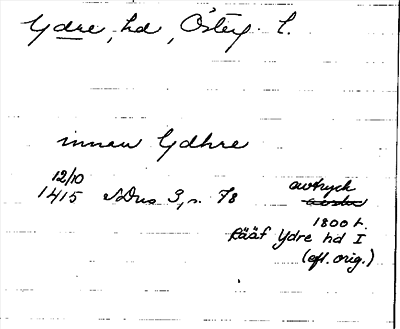 Ydre, hd, Österg. l.
innan Ydhre
12/10
1415 SDns 3, s. 78 avtryck
1800 t.
Rääf Ydre hd I
(efl. orig.)